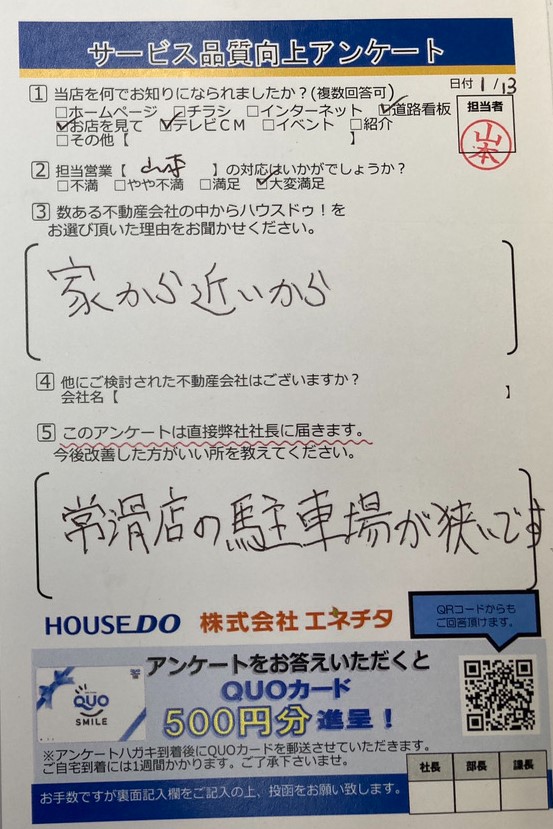 サービス品質向上アンケート
日付 1/13
1 当店を何でお知りになられましたか？(複数回答可)
□ホームページ □チラシ □インターネット ☑道路看板
☑お店を見て ☑テレビCM □イベント □紹介
□その他【 】
担当者
山本
2 担当営業【 山本 】の対応はいかがでしょうか？
□不満 □やや不満 □満足 ☑大変満足
3 数ある不動産会社の中からハウスドゥ！を
お選び頂いた理由をお聞かせください。
家から近いから
4 他にご検討された不動産会社はございますか？
会社名【 】
5 このアンケートは直接弊社社長に届きます。
今後改善した方がいい所を教えてください。
常滑店の駐車場が狭いです
HOUSE DO 株式会社 エネチタ
QRコードからも
ご回答頂けます。
アンケートをお答えいただくと
QUOカード
500円分 進呈！
QUO
SMILE
※アンケートハガキ到着後にQUOカードを郵送させていただきます。
ご自宅到着には1週間かかります。ご了承下さいませ。
社長 部長 課長
お手数ですが裏面記入欄をご記入の上、投函をお願い致します。